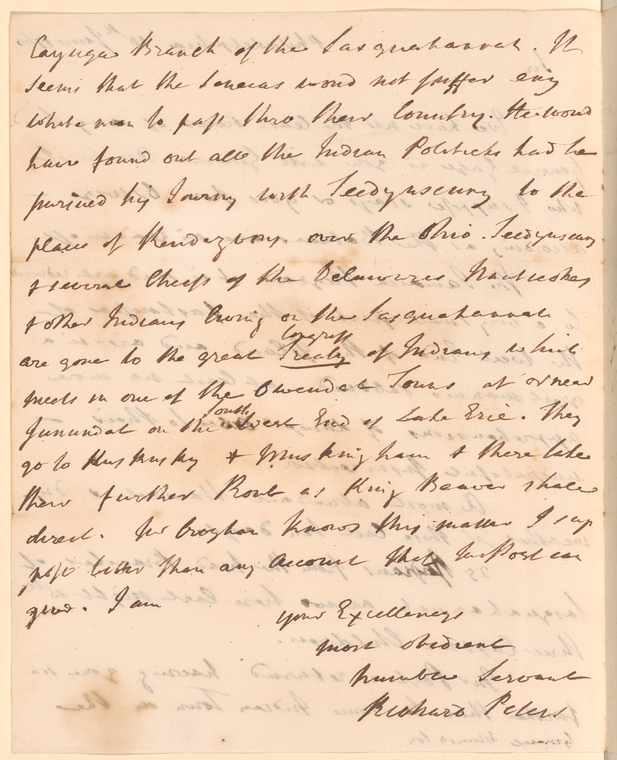 Cayuga Branch of the Sasquahannah. It
seems that the Senecas would not suffer any
white man to pass thro their Country. He would
have found out all the Indian Politicks had he
pursued his Journey with Teedyuscung to the
place of Rendezvous over the Ohio. Teedyuscung
& several Chiefs of the Delawares Nanticokes
& other Indians living on the Sasquahannah
Congress
are gone to the great Treaty of Indians which
meets in one of the Owendat Towns at or near
South
Junundat on the West End of Lake Erie. They
go to Kuskusky & Muskingham & there take
their further Rout as King Beaver shall
direct. Mr Croghan knows this matter I sup
pose better than any Account that Mr Post can
give. I am
your Excellencys
most obedient
humble Servant
Richard Peters